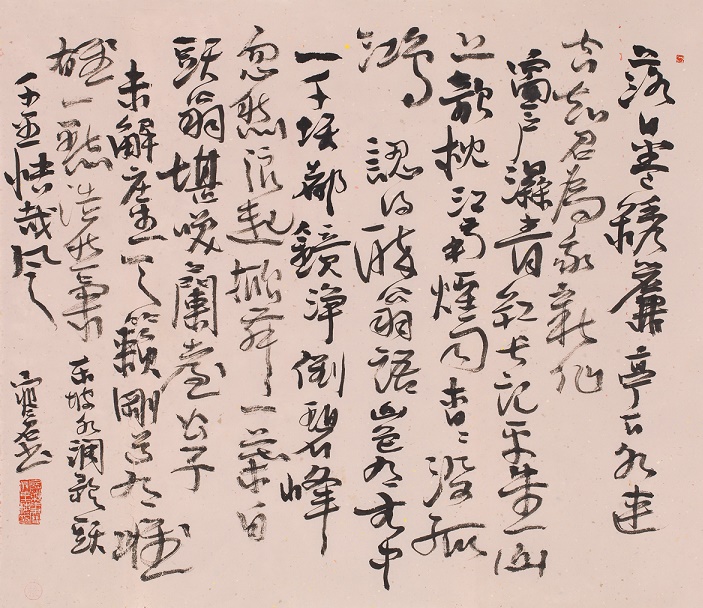 落日卷繡簾亭下水連
空知君為我新作
窗戶濕青紅長記平堂山
上欹枕江南煙雨杳々沒孤
鴻
認得醉翁語山色有無中
一千頃都鏡淨倒碧峰
忽然浪起掀舞一葉白
頭翁堪笑蘭臺公子
未解庄生天籟剛道有雌
雄一點浩然氣
千里快哉風
東坡水調歌頭